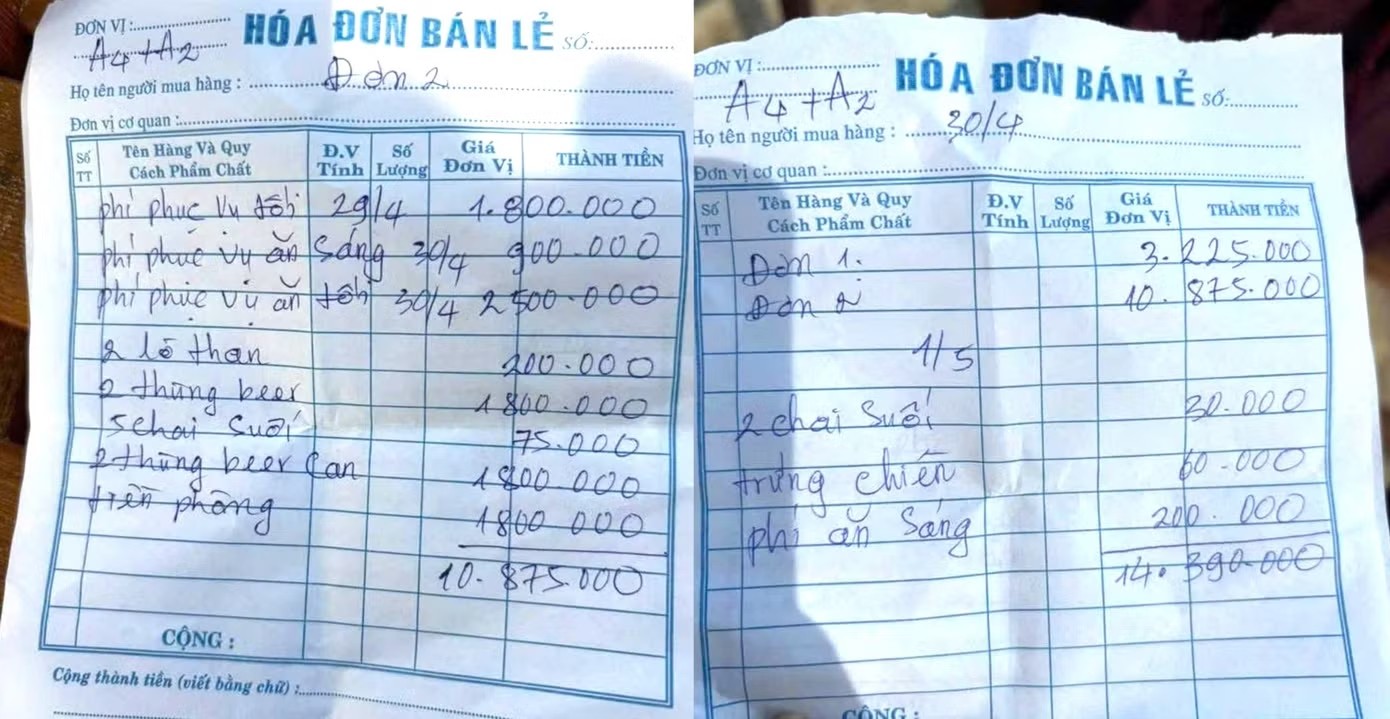 ĐƠN VỊ:
A4+A2
HÓA ĐƠN BÁN LẺ SỐ:
Họ tên người mua hàng : Đơn 2
Đơn vị cơ quan :
Số TT Tên Hàng Và Quy Cách Phẩm Chất Đ.V Tính Số Lượng Giá Đơn Vị THÀNH TIỀN
phí phục vụ tối 29/4 1.800.000
phí phục vụ ăn sáng 30/4 900.000
phí phục vụ ăn tối 30/4 2 500.000
2 lò than 200.000
2 thùng beer 1 800.000
5 chai suối 75.000
2 thùng beer can 1 800 000
tiền phòng 1 800 000
10.875.000
CỘNG :
Cộng thành tiền (viết bằng chữ) :
ĐƠN VỊ :
A4+A2
HÓA ĐƠN BÁN LẺ SỐ:
Họ tên người mua hàng : 30/4
Đơn vị cơ quan :
Số TT Tên Hàng Và Quy Cách Phẩm Chất Đ.V Tính Số Lượng Giá Đơn Vị THÀNH TIỀN
Đơn 1. 3.225.000
Đơn 2 10.875.000
1/5
2 chai suối 30.000
trứng chiên 60.000
phí ăn sáng 200.000
14.390.000
CỘNG :